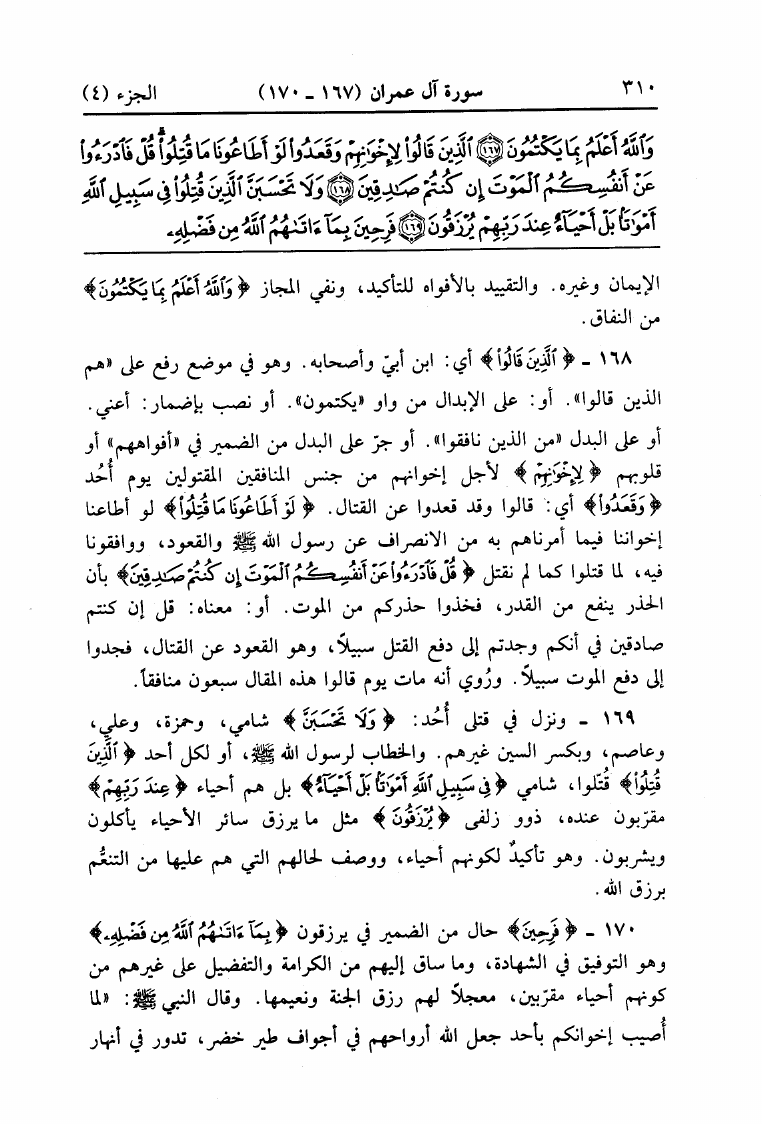 ٣١٠ سورة آل عمران (١٦٧ ـ ١٧٠) الجزء (٤)
وَٱللَّهُ أَعْلَمُ بِمَا يَكْتُمُونَ ١٦٧ ٱلَّذِينَ قَالُوا۟ لِإِخْوَٰنِهِمْ وَقَعَدُوا۟ لَوْ أَطَاعُونَا مَا قُتِلُوا۟ۗ قُلْ فَٱدْرَءُوا۟
عَنْ أَنفُسِكُمُ ٱلْمَوْتَ إِن كُنتُمْ صَـٰدِقِينَ ١٦٨ وَلَا تَحْسَبَنَّ ٱلَّذِينَ قُتِلُوا۟ فِى سَبِيلِ ٱللَّهِ
أَمْوَٰتًۢا بَلْ أَحْيَآءٌ عِندَ رَبِّهِمْ يُرْزَقُونَ ١٦٩ فَرِحِينَ بِمَآ ءَاتَىٰهُمُ ٱللَّهُ مِن فَضْلِهِۦ
الإيمان وغيره. والتقييد بالأفواه للتأكيد، ونفي المجاز ﴿وَٱللَّهُ أَعْلَمُ بِمَا يَكْتُمُونَ﴾
من النفاق.
١٦٨ ـ ﴿ٱلَّذِينَ قَالُوا۟﴾ أي: ابن أبيّ وأصحابه. وهو في موضع رفع على «هم
الذين قالوا». أو: على الإبدال من واو «يكتمون». أو نصب بإضمار: أعني.
أو على البدل «من الذين نافقوا». أو جرّ على البدل من الضمير في «أفواههم» أو
قلوبهم ﴿لِإِخْوَٰنِهِمْ﴾ لأجل إخوانهم من جنس المنافقين المقتولين يوم أُحُد
﴿وَقَعَدُوا۟﴾ أي: قالوا وقد قعدوا عن القتال. ﴿لَوْ أَطَاعُونَا مَا قُتِلُوا۟﴾ لو أطاعنا
إخواننا فيما أمرناهم به من الانصراف عن رسول الله ﷺ والقعود، ووافقونا
فيه، لما قتلوا كما لم نقتل ﴿قُلْ فَٱدْرَءُوا۟ عَنْ أَنفُسِكُمُ ٱلْمَوْتَ إِن كُنتُمْ صَـٰدِقِينَ﴾ بأن
الحذر ينفع من القدر، فخذوا حذركم من الموت. أو: معناه: قل إن كنتم
صادقين في أنكم وجدتم إلى دفع القتل سبيلاً، وهو القعود عن القتال، فجدوا
إلى دفع الموت سبيلاً. ورُوي أنه مات يوم قالوا هذه المقال سبعون منافقاً.
١٦٩ ـ ونزل في قتلى أُحُد: ﴿وَلَا تَحْسَبَنَّ﴾ شامي، وحمزة، وعلي،
وعاصم، وبكسر السين غيرهم. والخطاب لرسول الله ﷺ، أو لكل أحد ﴿ٱلَّذِينَ
قُتِلُوا۟﴾ قُتّلوا، شامي ﴿فِى سَبِيلِ ٱللَّهِ أَمْوَٰتًۢا بَلْ أَحْيَآءٌ﴾ بل هم أحياء ﴿عِندَ رَبِّهِمْ﴾
مقرّبون عنده، ذوو زلفى ﴿يُرْزَقُونَ﴾ مثل ما يرزق سائر الأحياء يأكلون
ويشربون. وهو تأكيدٌ لكونهم أحياء، ووصف لحالهم التي هم عليها من التنعُّم
برزق الله.
١٧٠ ـ ﴿فَرِحِينَ﴾ حال من الضمير في يرزقون ﴿بِمَآ ءَاتَىٰهُمُ ٱللَّهُ مِن فَضْلِهِۦ﴾
وهو التوفيق في الشهادة، وما ساق إليهم من الكرامة والتفضيل على غيرهم من
كونهم أحياء مقرّبين، معجلاً لهم رزق الجنة ونعيمها. وقال النبي ﷺ: «لما
أُصيب إخوانكم بأحد جعل الله أرواحهم في أجواف طير خضر، تدور في أنهار